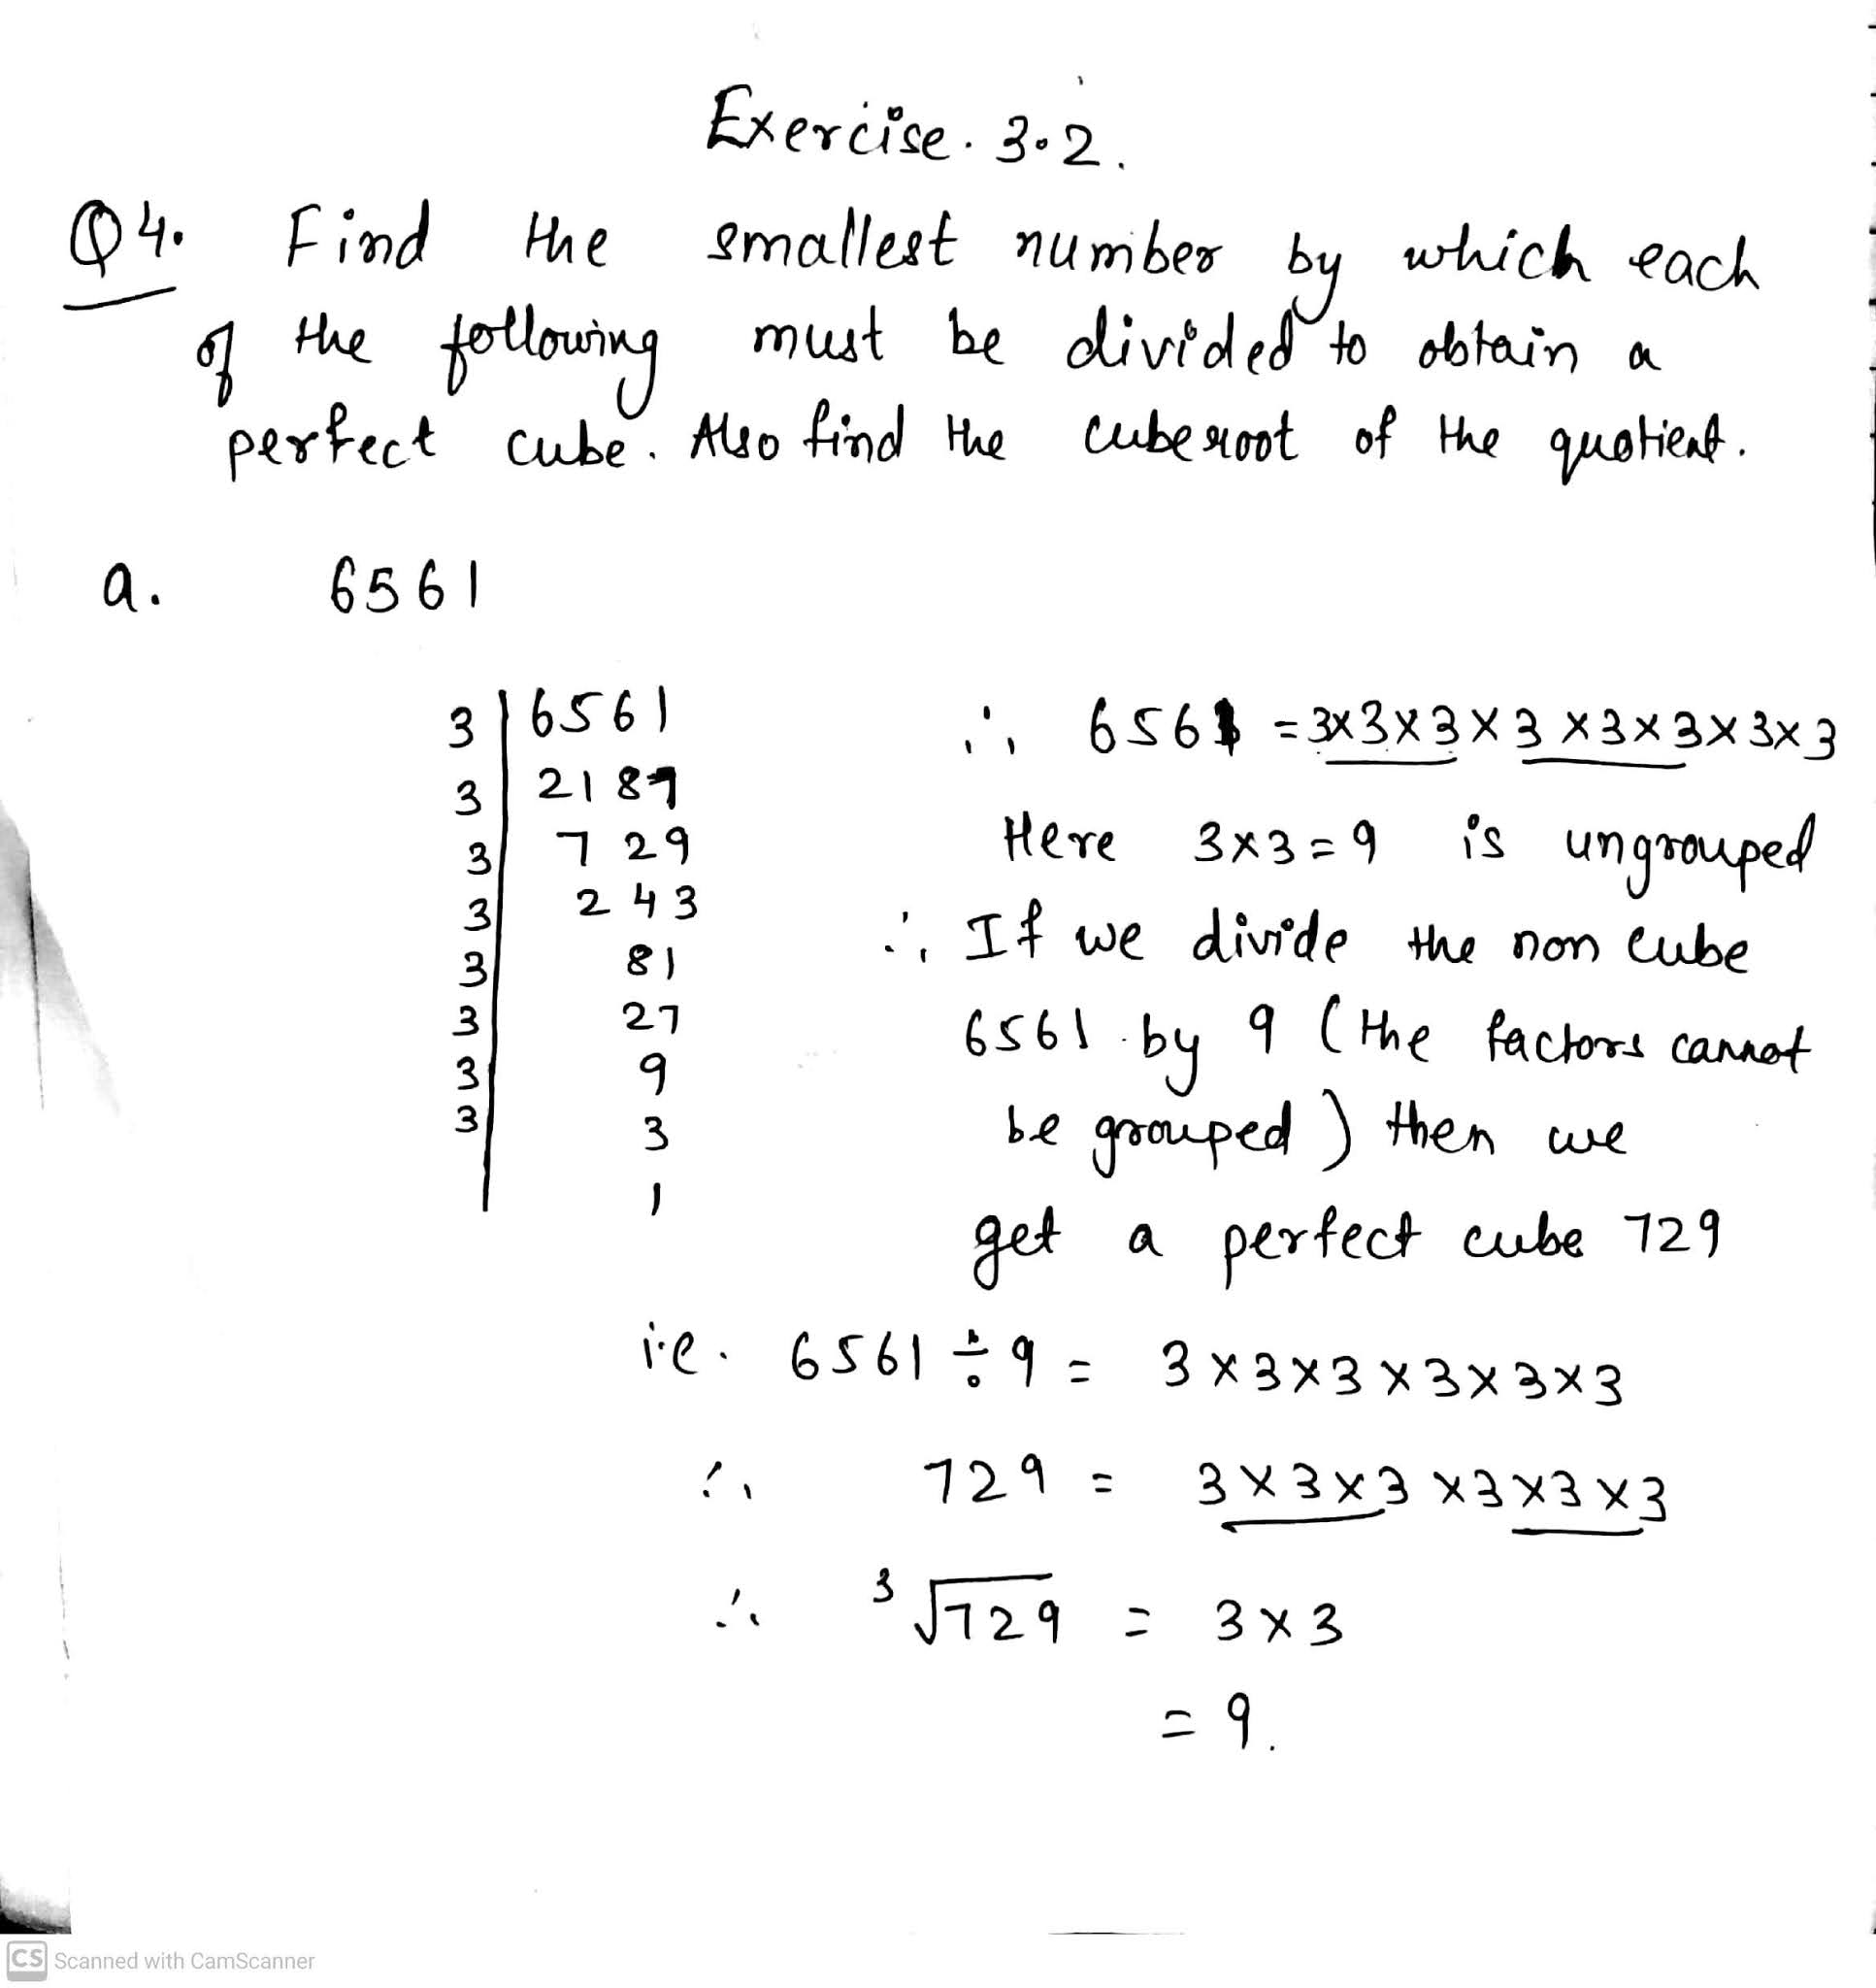 Exercise. 3.2.
Q4. Find the smallest number by which each
of the following must be divided to obtain a
perfect cube. Also find the cuberoot of the quotient.
a. 6561
3 | 6561
3 | 2187
3 | 729
3 | 243
3 | 81
3 | 27
3 | 9
3 | 3
1
∴ 6561 = 3x3x3x3x3x3x3x3
Here 3x3=9 is ungrouped
∴ If we divide the non cube
6561 by 9 (the factors cannot
be grouped) then we
get a perfect cube 729
i.e. 6561 ÷ 9 = 3x3x3x3x3x3
∴ 729 = 3x3x3x3x3x3
∴ ³√729 = 3x3
= 9.
CS Scanned with CamScanner